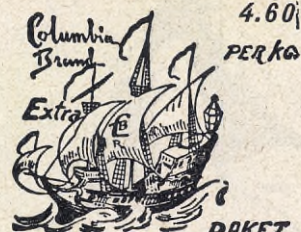 Columbia
Brand
Extra
4.60
PER KG
CB
R
PAKET